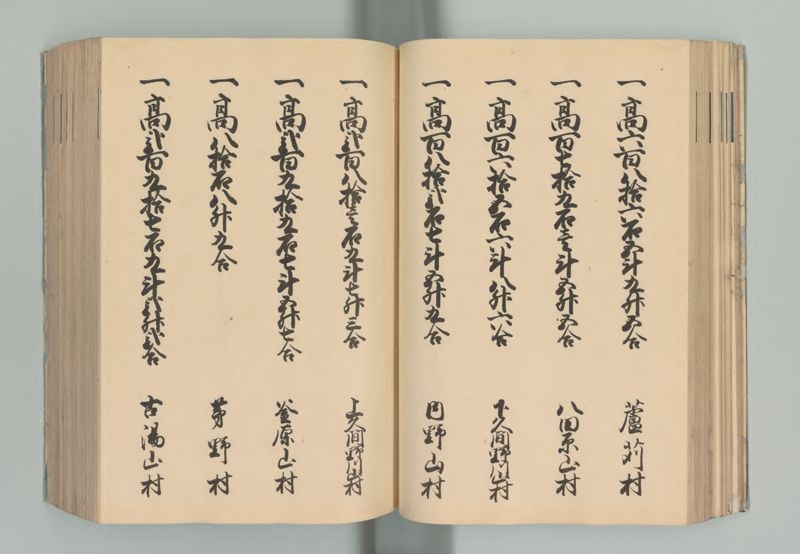 一高六百八拾六石五斗九升五合 蘆苅村
一高百七拾九石三斗五升五合 八田原山村
一高百六拾五石六斗八升六合 下久間野川山村
一高百八拾弐石七斗五升九合 内野山村
一高弐百八拾壱石九斗七升三合 上久間野川山村
一高弐百九拾九石七斗五升七合 釜原山村
一高八拾石八升九合 茅野村
一高弐百九拾七石九斗 升弐合 古湯山村